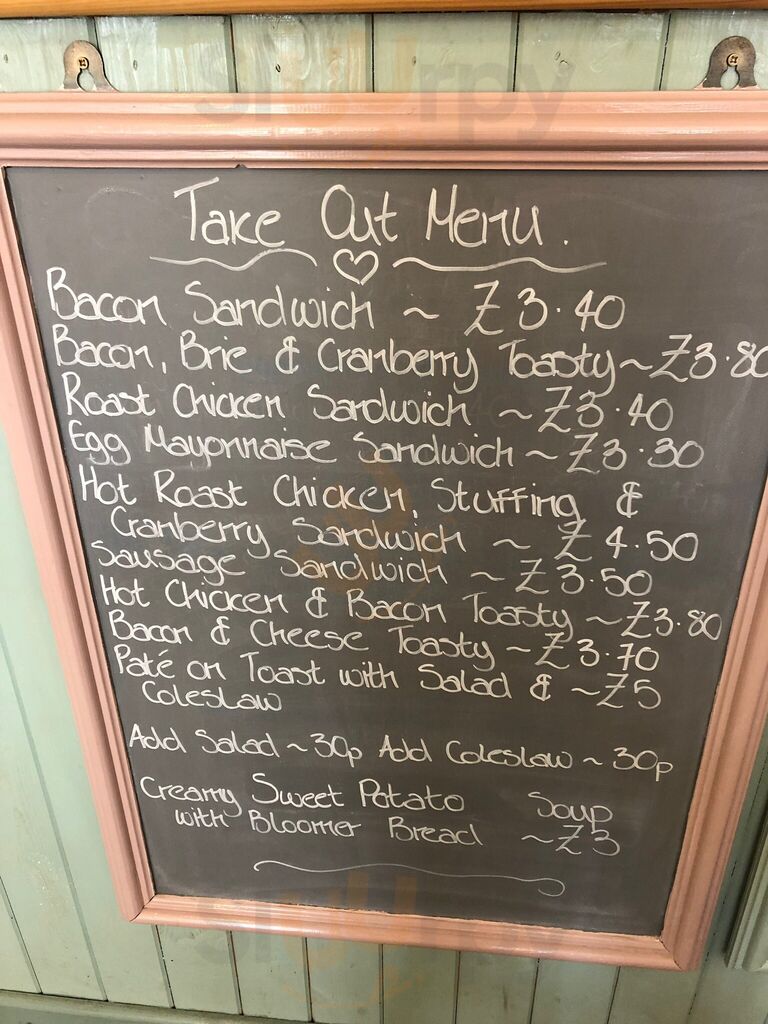 Take Out Menu.
Bacon Sandwich ~ £3.40
Bacon, Brie & Cranberry Toasty ~ £3.80
Roast Chicken Sandwich ~ £3.40
Egg Mayonnaise Sandwich ~ £3.30
Hot Roast Chicken, Stuffing &
Cranberry Sandwich ~ £4.50
Sausage Sandwich ~ £3.50
Hot Chicken & Bacon Toasty ~ £3.80
Bacon & Cheese Toasty ~ £3.70
Paté on Toast with Salad & ~ £5
Coleslaw
Add Salad ~ 30p Add Coleslaw ~ 30p
Creamy Sweet Potato Soup
with Bloomer Bread ~ £3